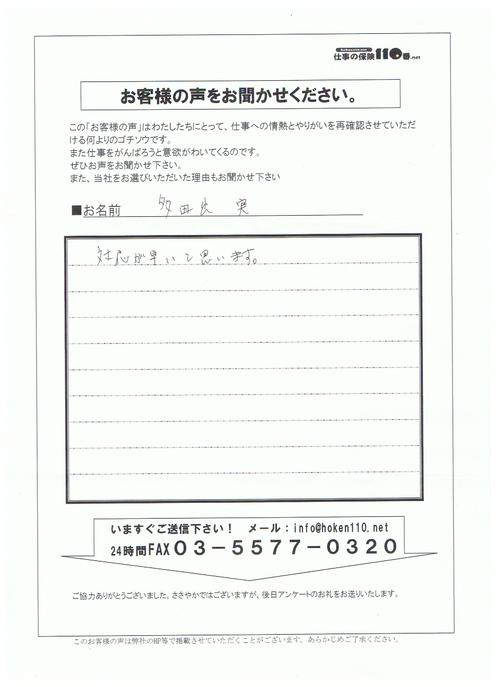 仕事の保険110番.net
お客様の声をお聞かせください。
この「お客様の声」はわたしたちにとって、仕事への情熱とやりがいを再確認させていただ
ける何よりのゴチソウです。
また仕事をがんばろうと意欲がわいてくるのです。
ぜひお声をお聞かせ下さい。
また、当社をお選びいただいた理由もお聞かせ下さい
■お名前 多田 実
対応が早いと思います。
いますぐご送信下さい! メール:info@hoken110.net
24時間FAX03-5577-0320
ご協力ありがとうございました。ささやかではございますが、後日アンケートのお礼をお送りいたします。
このお客様の声は弊社のHP等で掲載させていただくことがございます。あらかじめご了承ください。